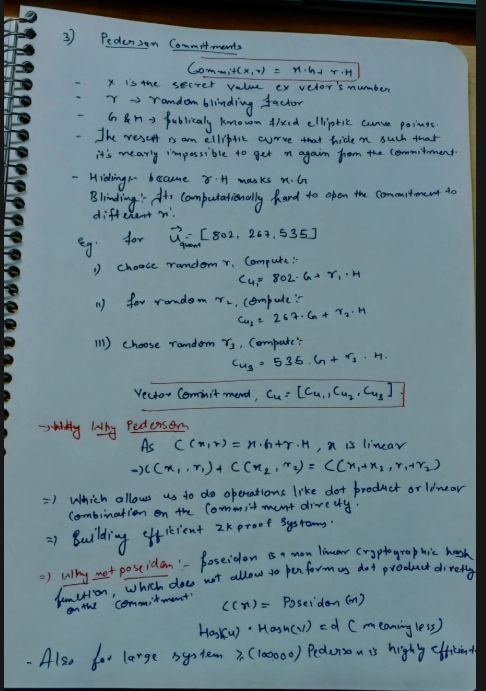 3) Pederson Commitments
Commit(x,r) = x.G+ r.H
- x is the secret value ex vetor's number
- r → random blinding factor
- G & H → publicaly known fixed elliptic curve points.
- The result is an elliptic curve that hide x such that
it's nearly impossible to get x again from the commitment.
- Hiding:- because r.H masks x.G
Blinding:- Its computationally hard to open the commitment to
different x'.
Eg. for U quant = [802, 267, 535]
i) choose random r, Compute:-
Cu1 = 802.G+ r1.H
ii) for random r2, Compute:-
Cu2 = 267.G + r2.H
iii) choose random r3, Compute:-
Cu3 = 535.G + r3.H.
Vector Commitmend, Cu = [Cu1, Cu2, Cu3]
→ Why Pederson
As C(x,r) = x.G+r.H, x is linear
→ C(x1, r1) + C(x2, r2) = C(x1+x2, r1+r2)
=) Which allows us to do operations like dot product or linear
Combination on the Commitment directly.
=) Building efficient zk proof systems.
=) Why not poseidon:- poseidon is a non linear cryptographic hash
function, which does not allow to perform us dot product diretly
on the commitment.
C(x) = Poseidon(x)
Hash(u) • Hash(v) = d (meaningless)
- Also for large system ≥(100000) Pederson is highly efficient